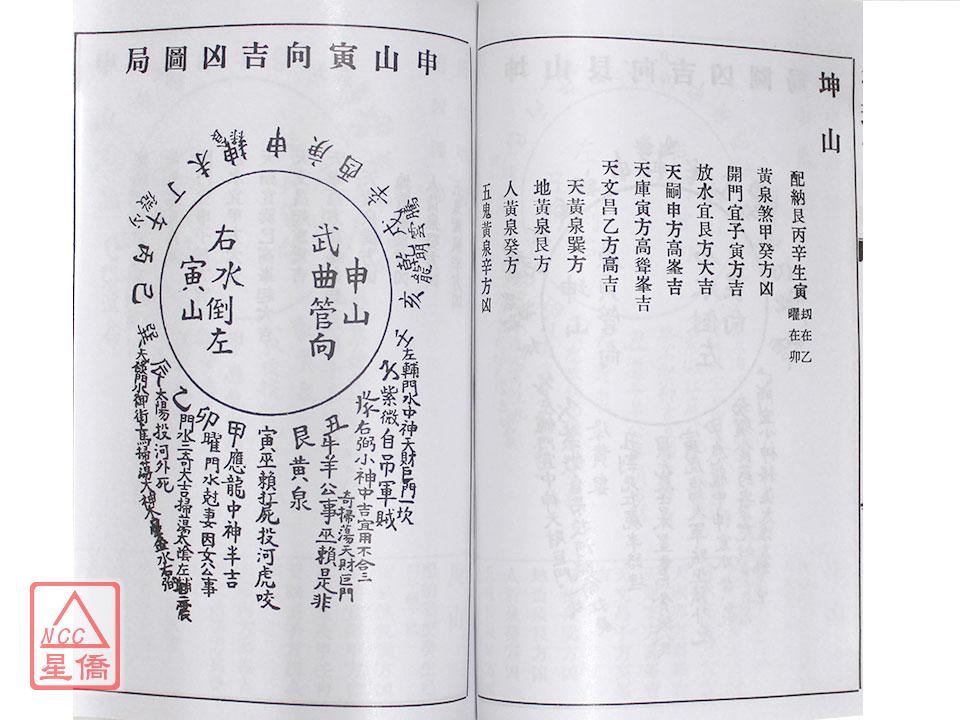 坤山
配納艮丙辛生寅 劫在乙
曜在卯
黃泉煞甲癸方凶
開門宜子寅方吉
放水宜艮方大吉
天嗣申方高峯吉
天庫寅方高聳峯吉
天文昌乙方高吉
天黃泉巽方
地黃泉艮方
人黃泉癸方
五鬼黃泉辛方凶
申山寅向吉凶圖局
申山
武曲管向
右水倒左
寅山
申
庚
酉
辛
戌
乾
亥
左輔門水中神天財巨門一坎
紫微自吊軍賊
癸右弼小神中吉宜用不合三
奇掃蕩天財巨門
丑牛羊公事巫賴是非
艮黃泉
寅巫賴打屍投河虎咬
甲應龍中神半吉
卯曜門水尅妻因女公事
乙門水三奇大吉掃蕩太陰左輔
辰太陽投河外死
巽
巳
丙
午
丁
未
坤
NCC
星僑